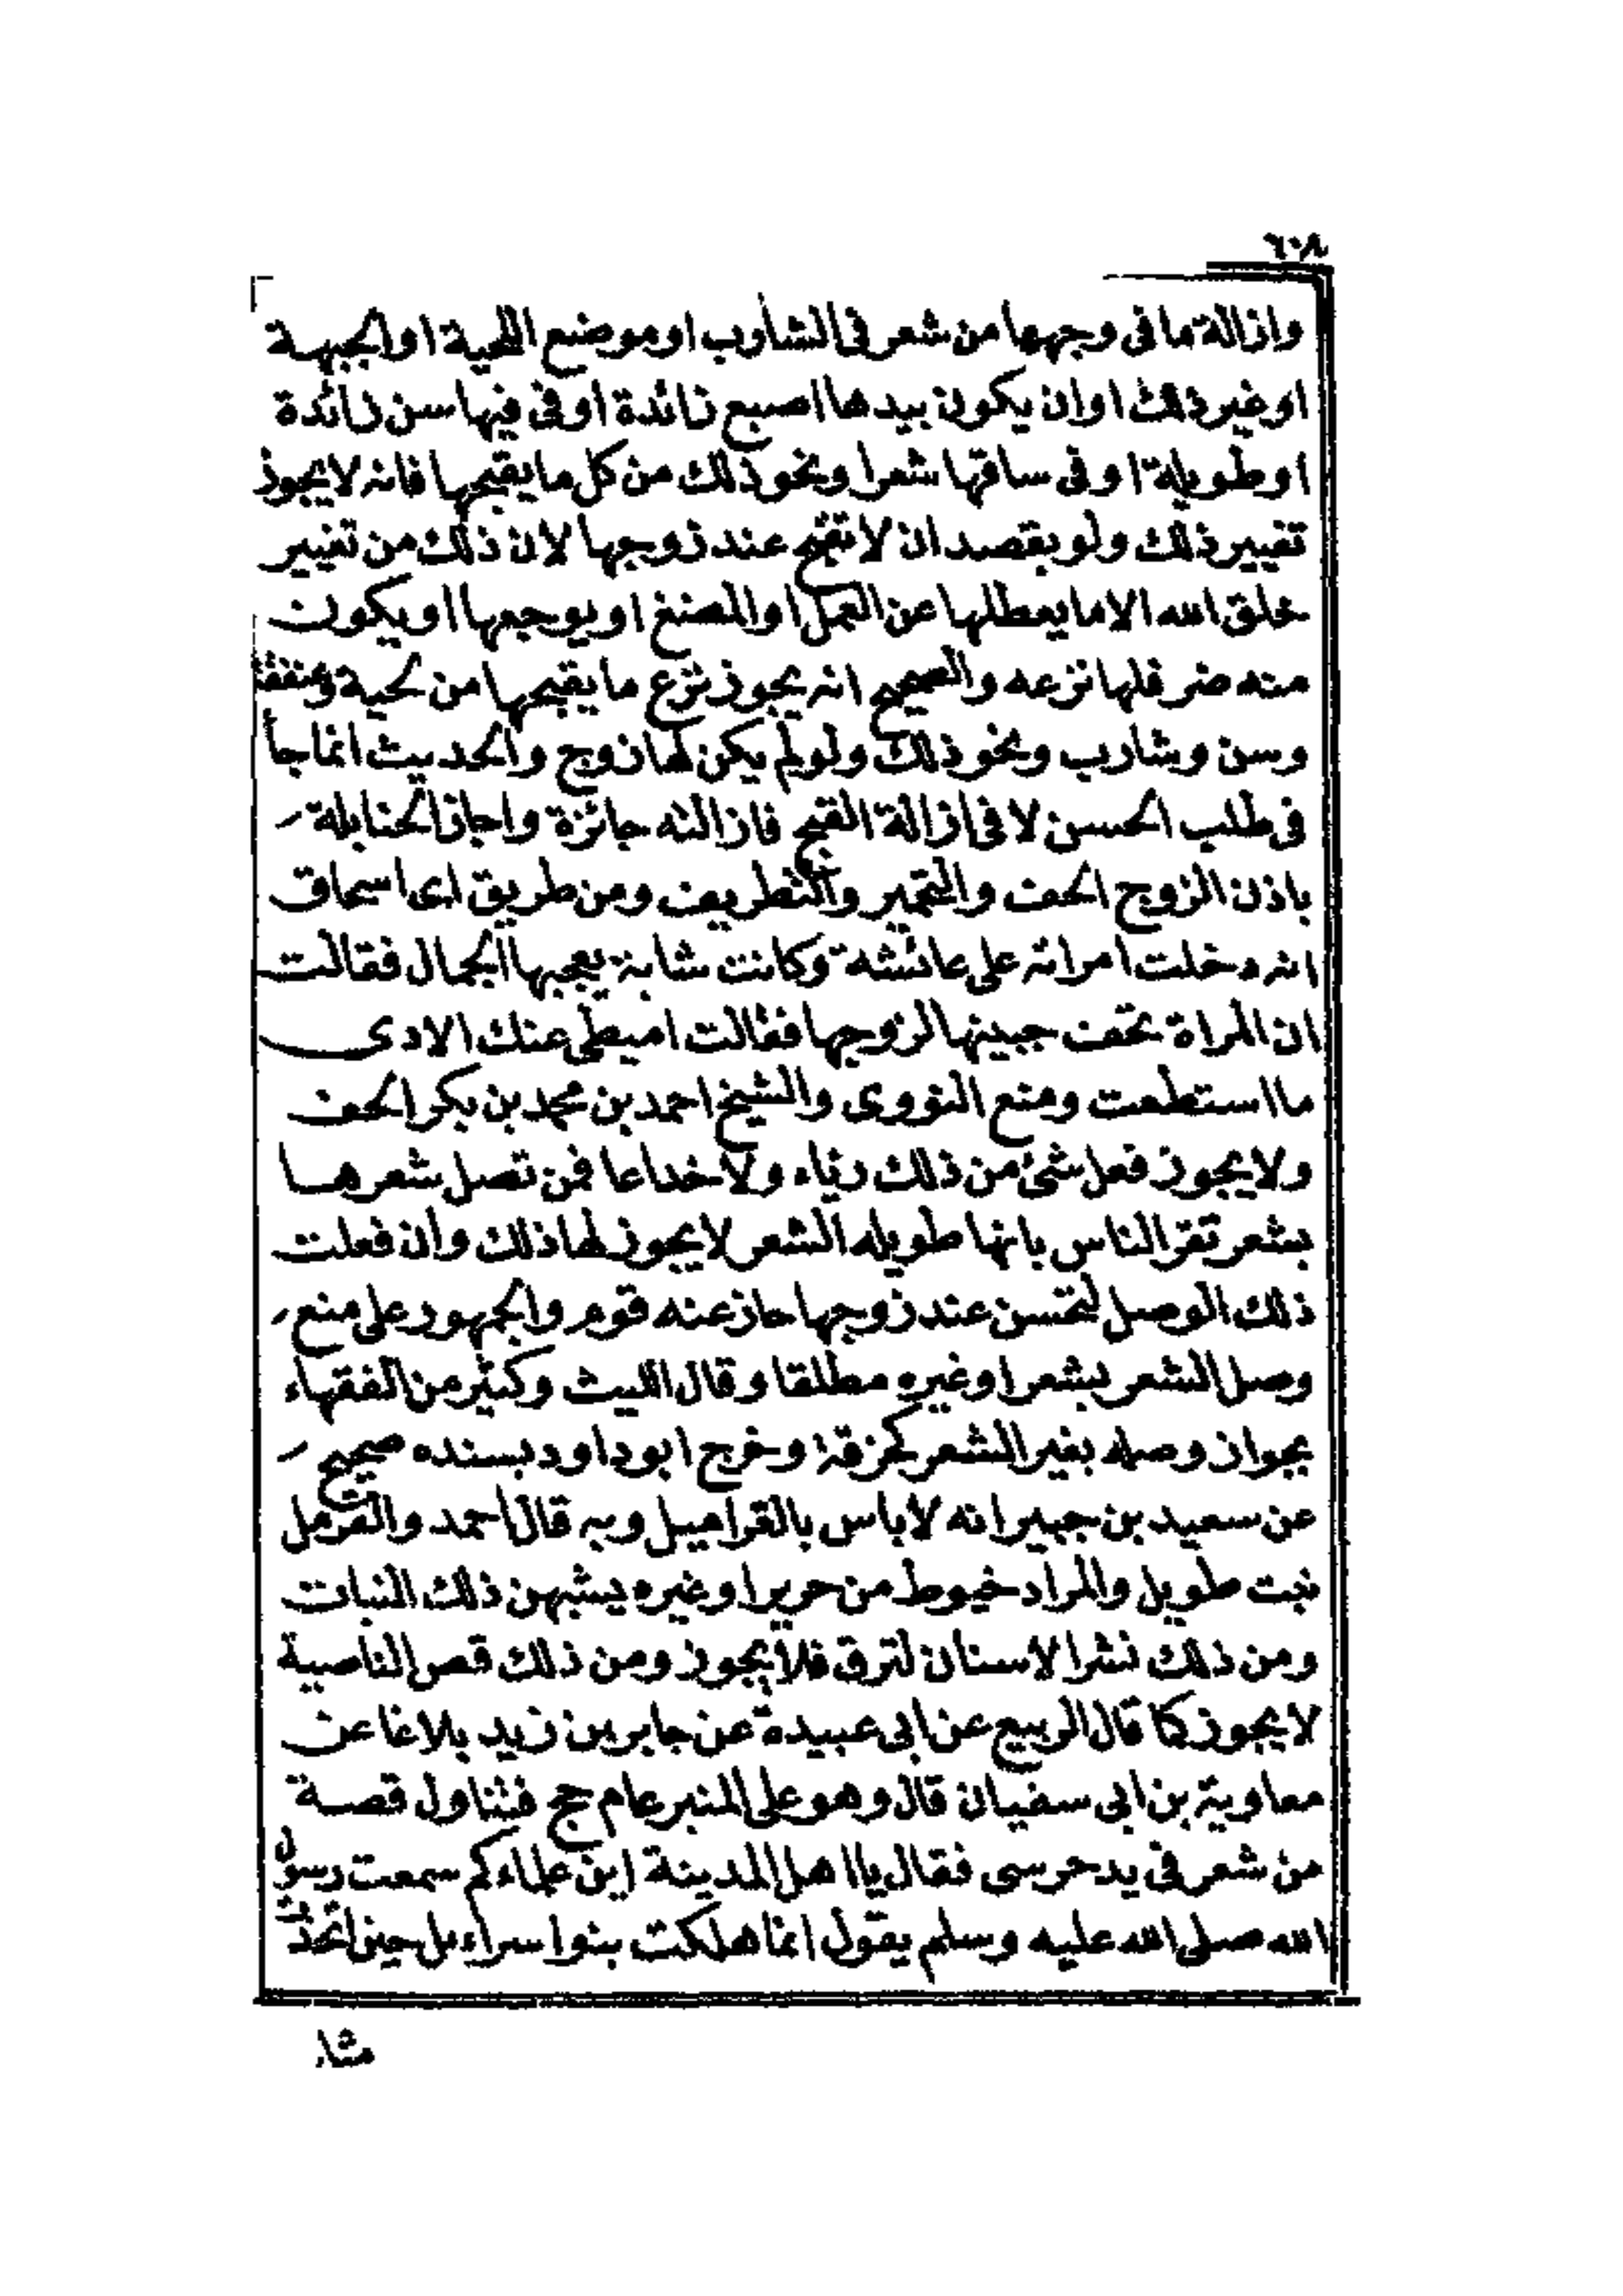 ٦٠٨
وازالة ما فى وجهها من شعر فى الشارب او موضع اللحية او الجبهة
او غير ذلك او ان يكون بيدها اصبع زائدة او فى فيها سن زائدة
او طويلة او فى ساقها شعرا ونحو ذلك من كل ما يقبحها فانه لا يجوز
تغيير ذلك ولو بقصد ان لا تقبح عند زوجها لان ذلك من تغيير
خلق الله الا ما يعطلها عن العمل او المضغ او يوجعها او يكون
منه ضر فلها نزعه والصحيح انه يجوز نزع ما يقبحها من لحية وعنفقة
وسن وشارب ونحو ذلك ولو لم يكن لها زوج والحديث انما جأ
فى طلب الحسن لا فى ازالة القبح فازالته جائزة واجاز الحنابلة
باذن الزوج الحف والتحمير والتطريف ومن طريق ابى اسحاق
انه دخلت امراته على عائشة وكانت شابة يعجبها الجمال فقالت
ان المراة تحف جبينها لزوجها فقالت اميطى عنك الادى
ما استطعت ومنع النووى والشيخ احمد بن محمد بن بكر الحف
ولا يجوز فعل شئ من ذلك رياء ولا خداعا فمن تصل شعرها
بشعر تقر الناس بانها طويله الشعر لا يجوز لها ذلك وان فعلت
ذلك الوصل لتحسن عند زوجها جاز عنه قوم والجمهور على منع
وصل الشعر بشعر او غيره مطلقا وقال الليث وكثير من الفقهاء
بجواز وصله بغير الشعر كخرقة وخرج ابو داود بسنده صحيح
عن سعيد بن جبير انه لا باس بالقراميل وبه قال احمد والقرمل
نبت طويل والمراد خيوط من حرير او غيره يشبهن ذلك النبات
ومن ذلك نشر الاسنان لترق فلا يجوز ومن ذلك قص الناصية
لا يجوز كما قال الربيع عن ابى عبيدة عن جابر بن زيد بلاغا عن
معاوية بن ابى سفيان قال وهو على المنبر عام حج فتناول قصة
من شعر فى يد حرسى فقال يا اهل المدينة اين علماءكم سمعت رسول
الله صلى الله عليه وسلم يقول انما هلكت بنوا سراءيل حين اتخذت